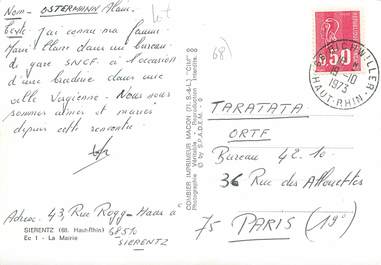 Nom - OSTERMANN Alain.
Texte : j'ai connu ma femme
Marie Claire dans un bureau
de gare SNCF à l'occasion
d'une braderie dans une
ville Vosgienne. Nous nous
sommes aimés et mariés
depuis cette rencontre.
Adresse : 43, Rue Rogg-Haas
68510
SIERENTZ
SIERENTZ (68. Haut-Rhin)
Ec 1 - La Mairie
COMBIER IMPRIMEUR MACON (71. S.-&-L.) "CIM"
Photographie Véritable - Reproduction Interdite
© by S.P.A.D.E.M.
68
0,50
68 RICHWILLER
19-10
1973
HAUT-RHIN
TARATATA
ORTF
Bureau 42.10
36 Rue des Alouettes
75 PARIS (19e)